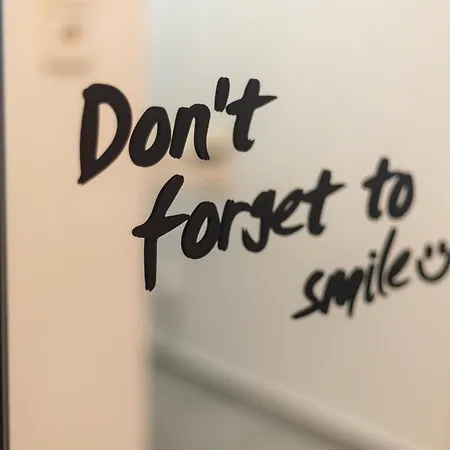 Don't
forget to
smile